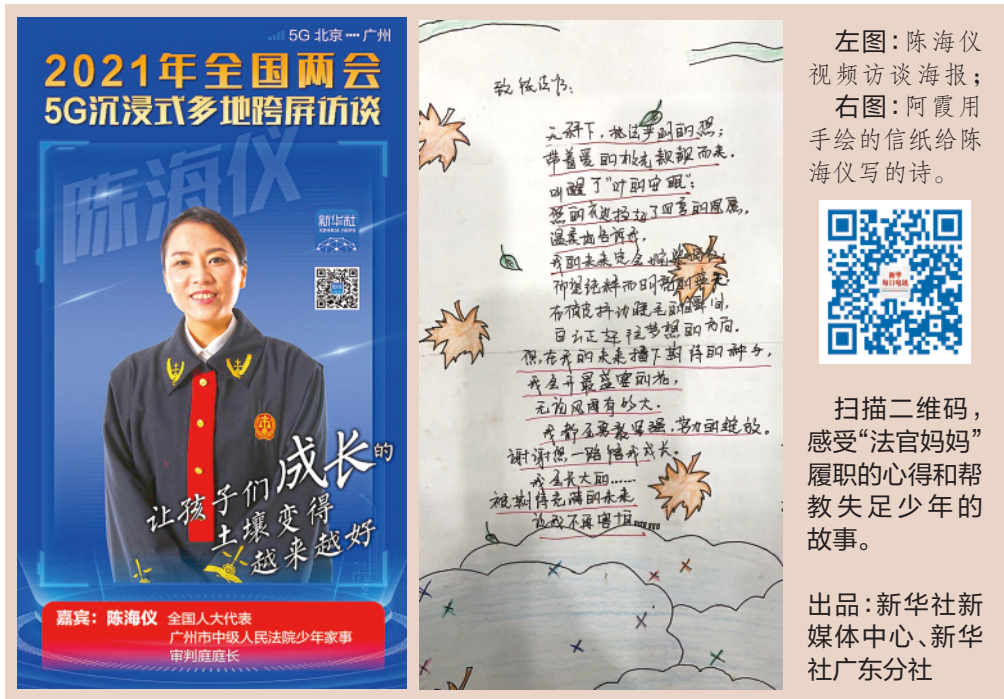 5G 北京····广州
2021年全国两会
5G沉浸式多地跨屏访谈
陈海仪
新华社
XINHUA NEWS
让孩子们成长的
土壤变得
越来越好
嘉宾：陈海仪 全国人大代表
广州市中级人民法院少年家事
审判庭庭长
带着爱的极光款款而来，
叫醒了“叶的安眠”；
温柔地告诉我，
我的未来定会
仰望纯粹而明亮的
在彼此抖动睫毛的瞬间，
正好往梦想的方向．
您，在我的未来播下期待的种子，
我会开最盛的花，
无论风雨有多大，
我都会勇敢坚强，努力的绽放。
谢谢您，一路陪我成长。
我会长大的……
被期待充满的未来
让我不再害怕……
左图：陈海仪
视频访谈海报；
右图：阿霞用
手绘的信纸给陈
海仪写的诗。
新华
每日电讯
扫描二维码，
感受“法官妈妈”
履职的心得和帮
教失足少年的
故事。
出品：新华社新
媒体中心、新华
社广东分社